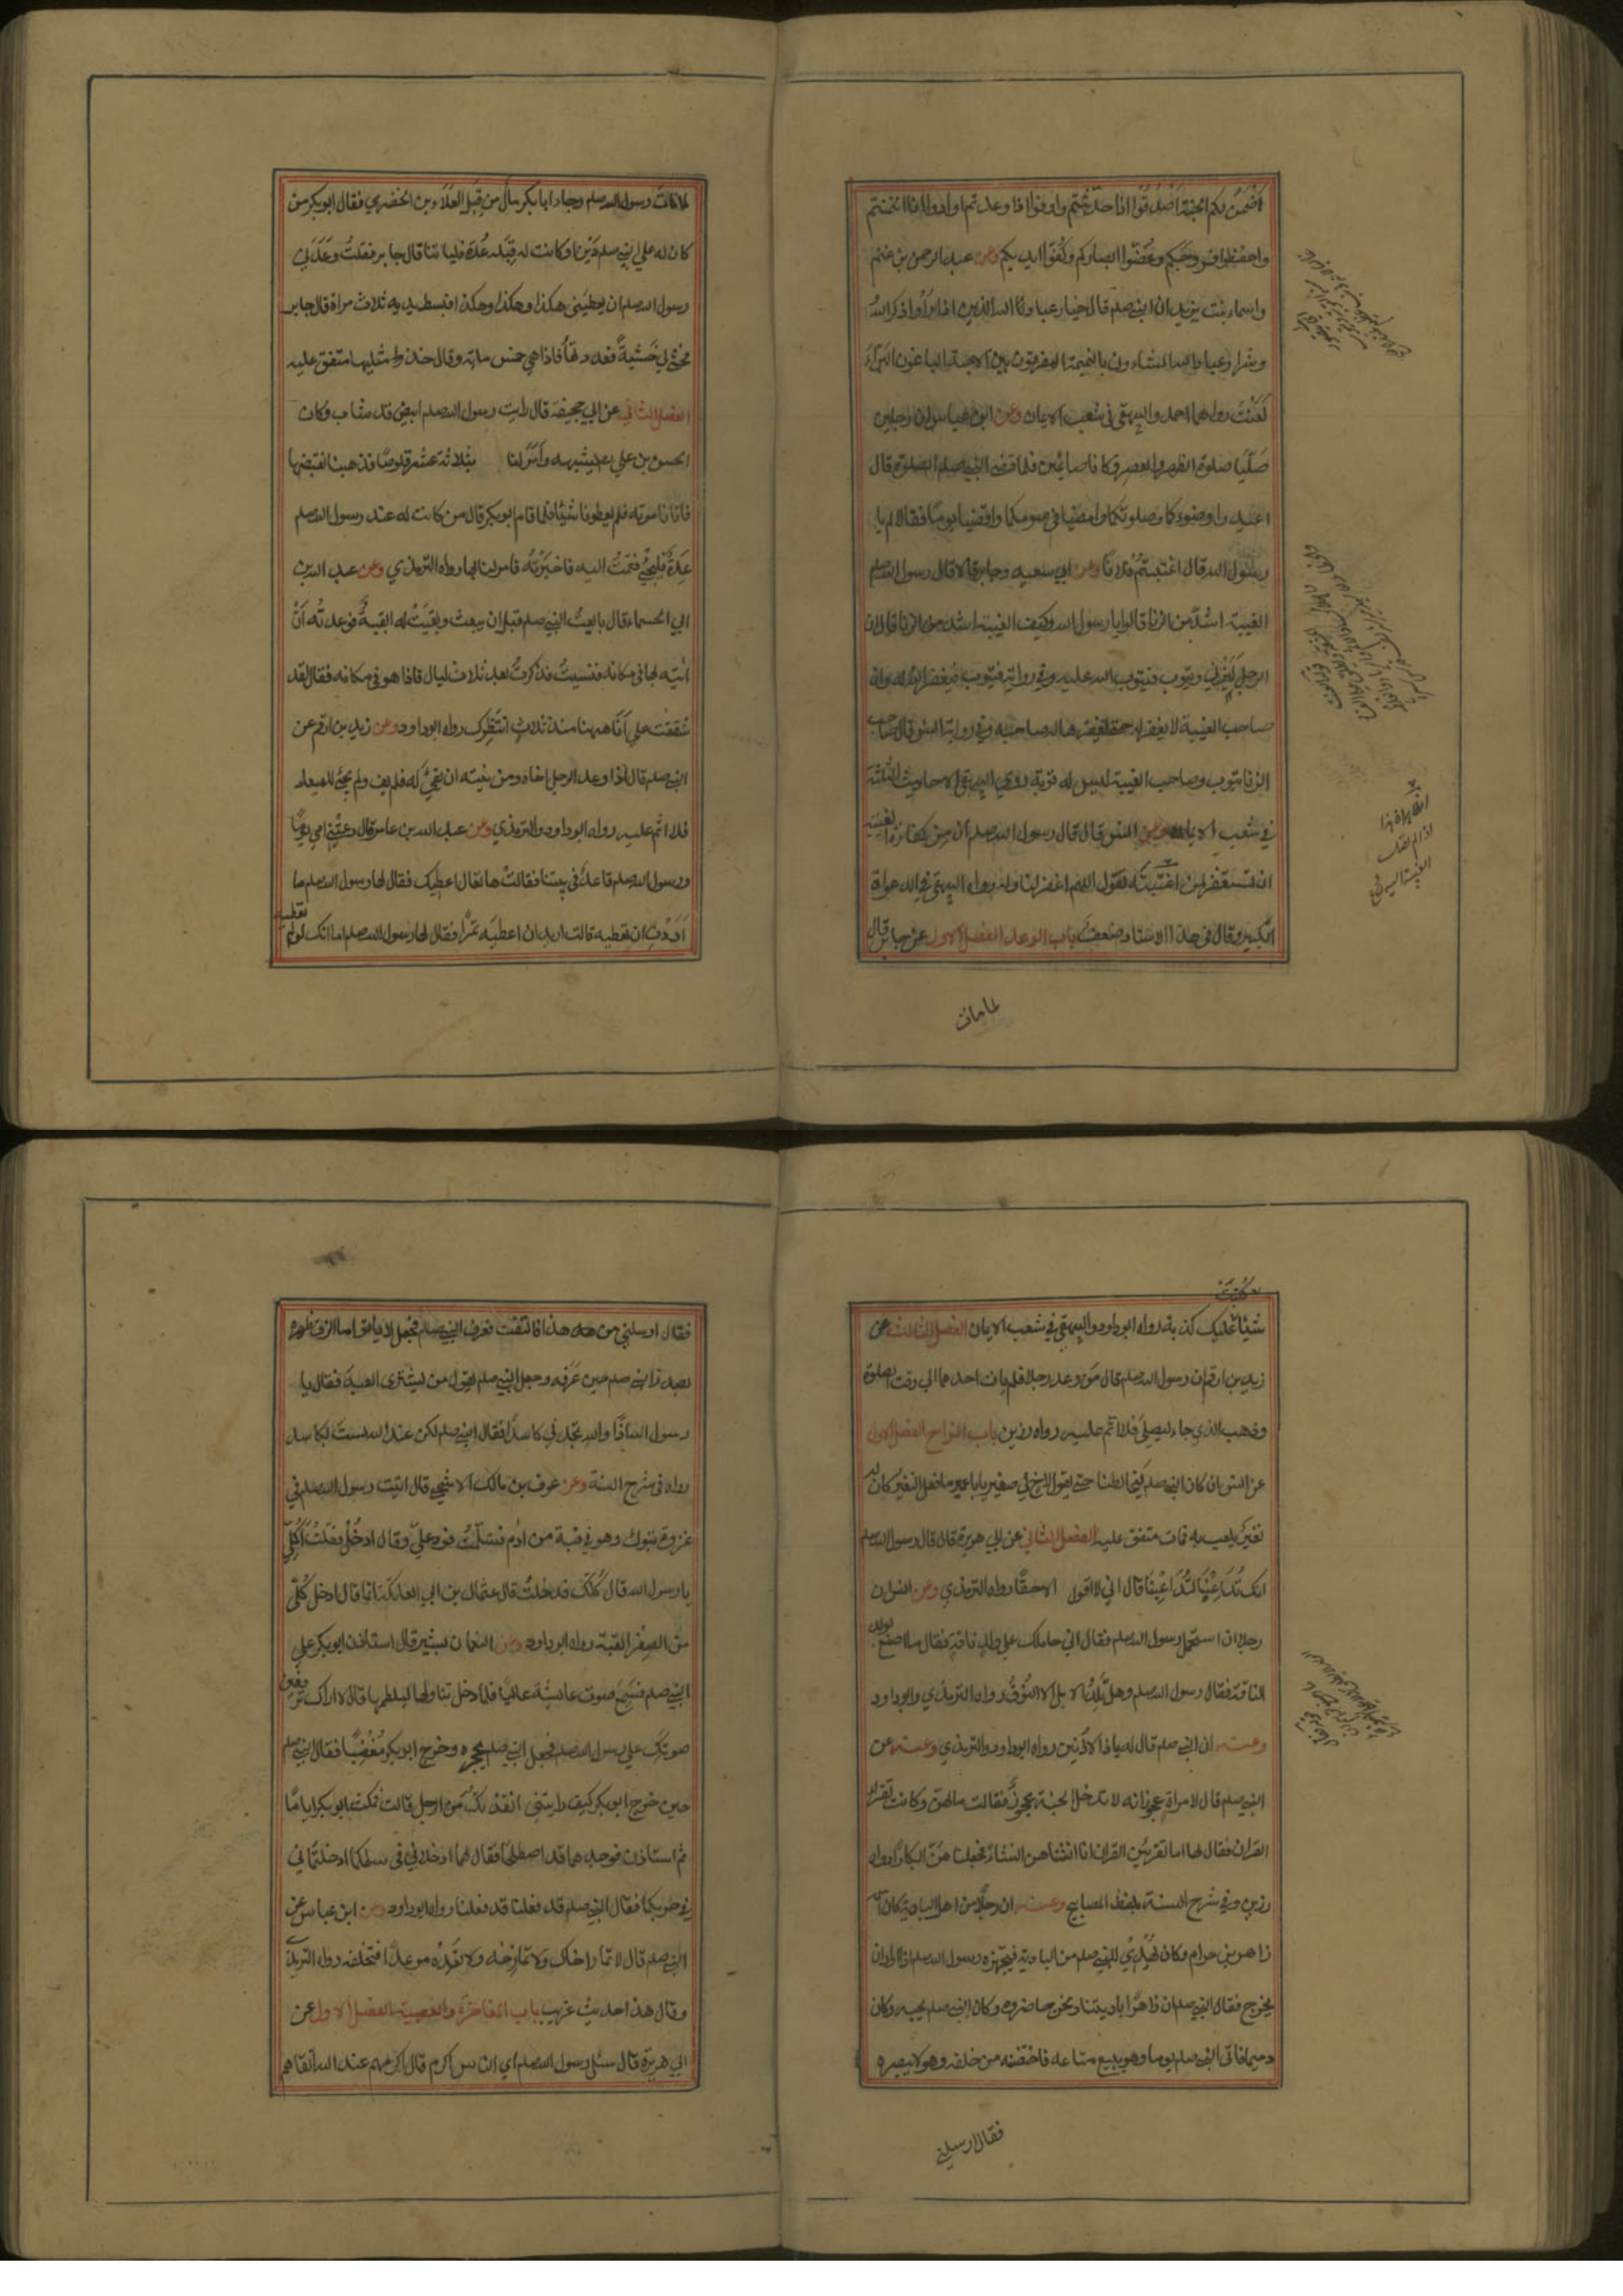 أَضْمَنُ لكم الجنة اَصْدُقُوا اذا حدّثتم واوفوا اذا وعدتم وادوا اذا ائتمنتم
واحفظوا فروجكم وغُضّوا ابصاركم وكُفّوا ايديكم وعن عبد الرحمن بن غنم
واسماء بنت يزيد ان النبي صلم قال خيار عباد الله الذين اذا رأوا ذكر الله
وشرار عباد الله المشاءون بالنميمة المفرقون بين الاحبة الباغون البَرَآءَ
لعَنَتَ رواهما احمد والبيهقي في شعب الايمان وعن ابن عباس ان رجلين
صَلّيا صلوة الظهر والعصر وكانا صائمين فلما قضى النبي صلم الصلوة قال
اعيدا وضوءكما وصلوتكما وامضيا في صومكما واقضيا يومًا فقالا لم يا
رسول الله قال اغتبتُم فلانًا وعن ابي سعيد وجابر قالا قال رسول الله صلم
الغيبة اشدّ من الزنا قالوا يا رسول الله وكيف الغيبة اشد من الزنا قال ان
الرجل لَيَزْني ويتوب فيتوب الله عليه وفي رواية فيتوب فيغفر الله له وان
صاحب الغيبة لا يغفر له حتى يغفرها له صاحبه وفي رواية انس قال صاحب
الزنا يتوب وصاحب الغيبة ليس له توبة روى البيهقي الاحاديث الثلثة
في شعب الايمان وعن انس قال قال رسول الله صلم ان من كفارة الغيبة
ان تستغفر لمن اغتبتَه تقول اللهم اغفر لنا وله رواه البيهقي في الدعوات
الكبير وقال في هذا الاسناد ضعف باب الوعد الفصل الاول عن جابر قال
لما مات
لما مات رسول الله صلم وجاء ابا بكر مال من قِبَل العلاء بن الحضرمي فقال ابو بكر من
كان له على النبي صلم دَيْن او كانت له قِبَله عِدَة فلياتنا قال جابر فقلتُ وَعَدَني
رسول الله صلم ان يعطيني هكذا وهكذا وهكذا فبسط يديه ثلاث مرات قال جابر
فحثى لي حَثيةً فعددتها فاذا هي خمس مائة وقال خذ مثليها متفق عليه
الفصل الثاني عن ابي جحيفة قال رايت رسول الله صلم ابيض قد شاب وكان
الحسن بن علي يشبهه وأمَرَ لنا بثلاثة عشر قلوصًا فذهبنا نقبضها
فاتانا موته فلم يعطونا شيئًا فلما قام ابو بكر قال من كانت له عند رسول الله صلم
عِدَةٌ فليجئ فقمتُ اليه فاخبرْتُه فامر لنا بها رواه الترمذي وعن عبد الله بن
ابي الحسماء قال بايعتُ النبي صلم قبل ان يبعث وبقيَتْ له بقيةٌ فوعدتُه اَنْ
اٰتيَه بها في مكانه فنسيتُ فذكرتُ بعد ثلاث ليال فاذا هو في مكانه فقال لقد
شققتَ علي اَنا ههنا منذ ثلاثٍ انتَظِرك رواه ابو داود وعن زيد بن ارقم عن
النبي صلم قال اذا وعد الرجل اخاه ومن نيته ان يَفِيَ له فلم يف ولم يجئ للميعاد
فلا اثم عليه رواه ابو داود والترمذي وعن عبد الله بن عامر قال دعتْني امي يومًا
ورسول الله صلم قاعدٌ في بيتنا فقالت ها تعال اعطيك فقال لها رسول الله صلم ما
اَرَدْتِ ان تعطيه قالت اردت ان اعطيه تمرًا فقال لها رسول الله صلم اما انك لو لم تعطيه
شيئًا كُتِبَتْ عليك كذبة رواه ابو داود والبيهقي في شعب الايمان الفصل الثالث عن
زيد بن ارقم ان رسول الله صلم قال مَن وعد رجلا فلم يات احدهما الى وقت الصلوة
وذهب الذي جاء ليصلّي فلا اثم عليه رواه رزين باب المزاح الفصل الاول
عن انس ان كان النبي صلم ليخالطنا حتى يقول لاخ لي صغير يا ابا عمير ما فعل النغير كان له
نغيرٌ يلعب به فمات متفق عليه الفصل الثاني عن ابي هريرة قال قال رسول الله صلم
انك تُداعبنا قال اني لا اقول الا حقًا رواه الترمذي وعن انس ان
رجلا استحمل رسول الله صلم فقال اني حاملك على ولد ناقة فقال ما اصنع بولد
الناقة فقال رسول الله صلم وهل تَلِدُ الابل الا النُّوقُ رواه الترمذي وابو داود
وعنه ان النبي صلم قال له يا ذا الاذنين رواه ابو داود والترمذي وعنه عن
النبي صلم قال لامراة عجوز انه لا تدخل الجنة عجوزٌ فقالت ما لهنّ وكانت تقرأ
القرآن فقال لها اما تقرئين القرآن انا انشأناهن انشاءً فجعلناهنّ ابكارًا رواه
رزين وفي شرح السنة بلفظ المصابيح وعنه ان رجلًا من اهل البادية كان اسمه
زاهر بن حرام وكان يُهْدِي للنبي صلم من البادية فيجهزه رسول الله صلم اذا اراد ان
يخرج فقال النبي صلم ان زاهرًا باديتنا ونحن حاضروه وكان النبي صلم يحبه وكان
دميما فاتى النبي صلم يوما وهو يبيع متاعه فاحتضنه من خلفه وهو لا يبصره
فقال ارسلني
فقال ارسلني من هذا فالتفت فعرف النبي صلم فجعل لا يالو ما الزق ظهره
بصدر النبي صلم حين عَرَفه وجعل النبي صلم يقول من يشتري العبد فقال يا
رسول الله اذًا والله تجدني كاسدًا فقال النبي صلم لكن عند الله لست بكاسد
رواه في شرح السنة وعن عوف بن مالك الاشجعي قال اتيت رسول الله صلم في
غزوة تبوك وهو في قبة من اَدَم فسَلَّمتُ فرد عليّ وقال ادخُلْ فقلتُ اَكُلِّي
يا رسول الله قال كُلُّك فدخلتُ قال عثمان بن ابي العاتكة انما قال ادخل كُلِّي
من صِغَر القبة رواه ابو داود وعن النعمان بن بشير قال استاذن ابو بكر على
النبي صلم فسَمِعَ صوت عائشة عاليًا فلما دخل تناولها ليلطمها وقال لا اراك ترفعين
صوتَكِ على رسول الله صلم فجعل النبي صلم يحجزه وخرج ابو بكر مُغضَبًا فقال النبي صلم
حين خرج ابو بكر كيف رايتِني انقذتُكِ من الرجل قالت فمكث ابو بكر اياما
ثم استاذن فوجدهما قد اصطلحا فقال لهما ادخلاني في سلمكما كما ادخلتماني
في حربكما فقال النبي صلم قد فعلنا قد فعلنا رواه ابو داود وعن ابن عباس عن
النبي صلم قال لا تمار اخاك ولا تمازحْه ولا تَعِدْه موعدًا فتخلفه رواه الترمذي
وقال هذا حديث غريب باب المفاخرة والعصبية الفصل الاول عن
ابي هريرة قال سئل رسول الله صلم اي الناس اكرم قال اكرمهم عند الله اتقاهم